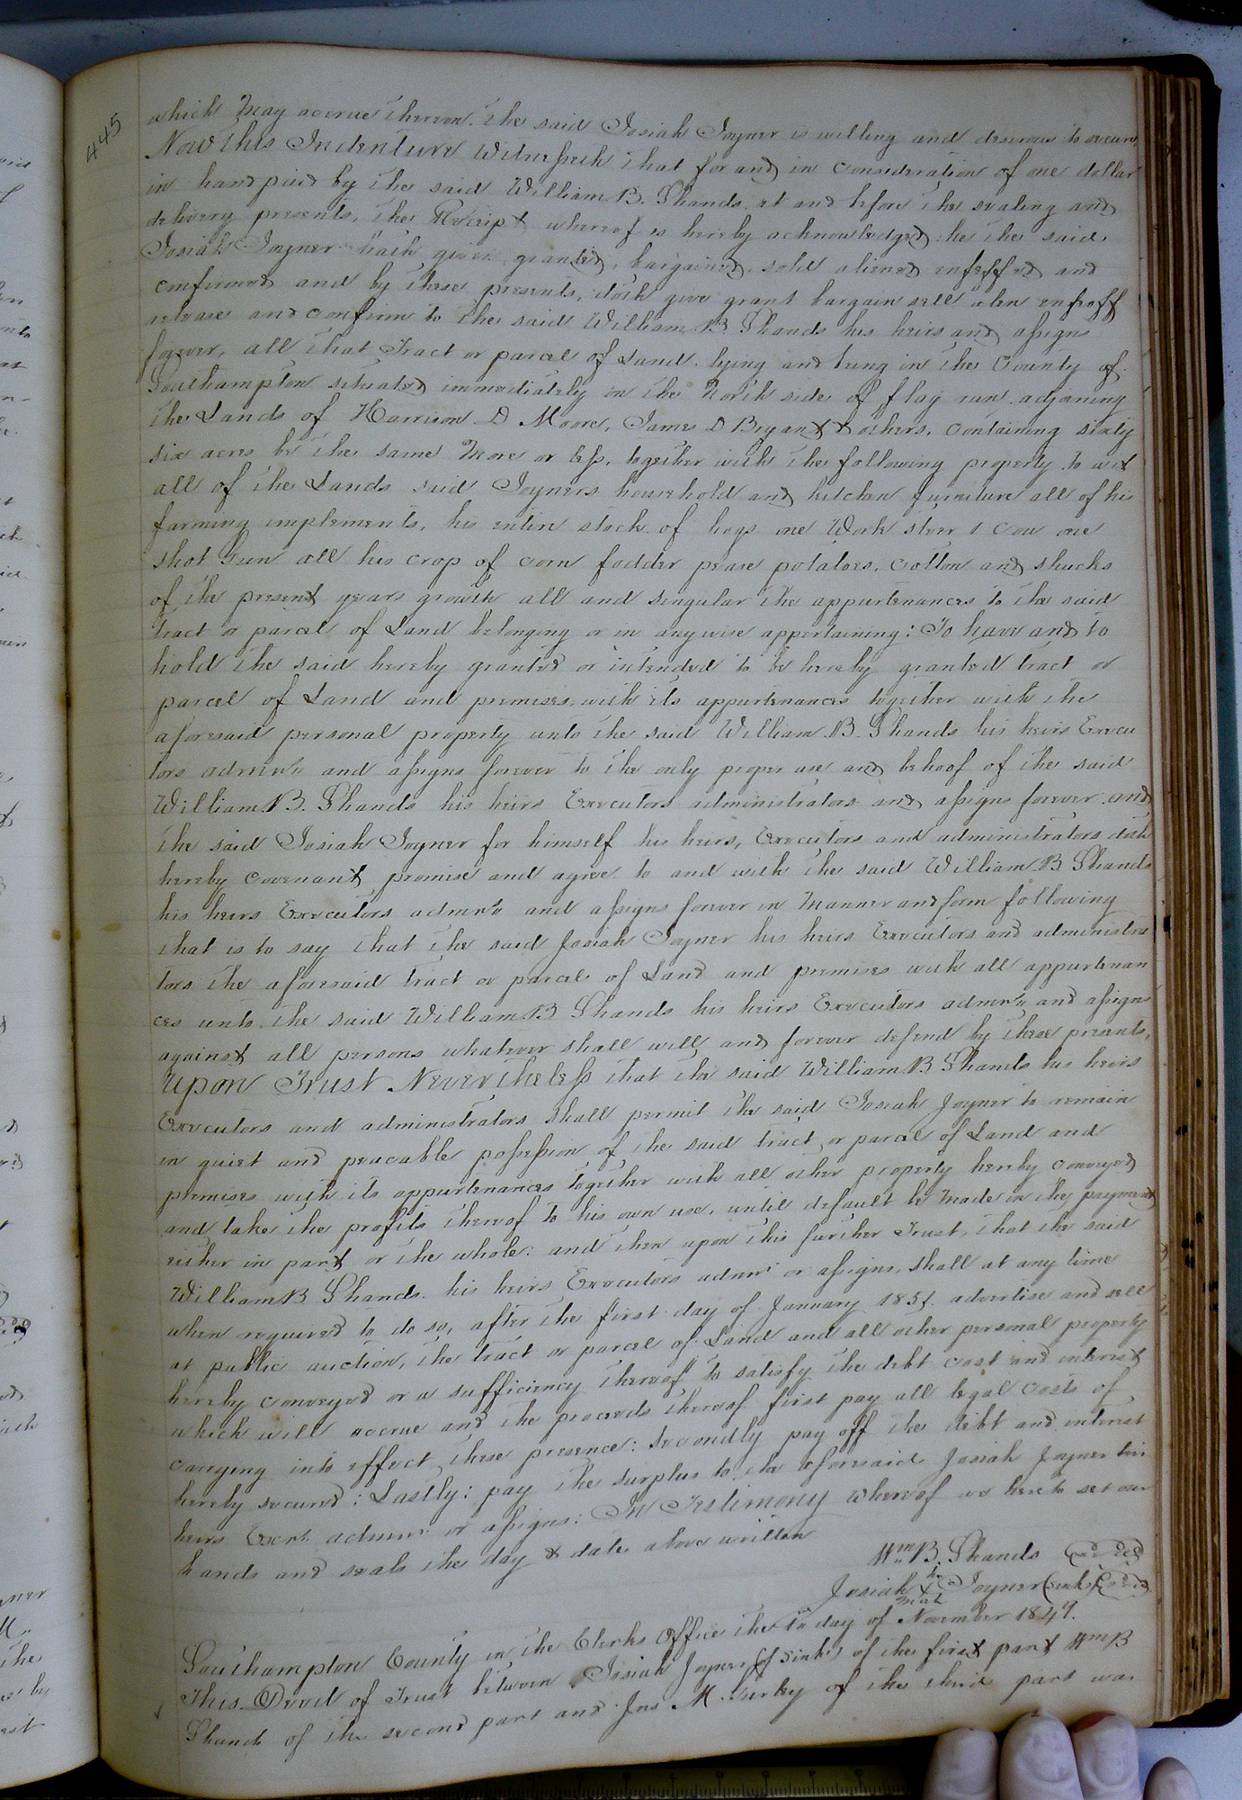 445
which may accrue thereon. the said Josiah Joyner is willing and desirous to secure,
Now this Indenture Witnesseth that for and in consideration of one dollar
in hand paid by the said William B. Shands, at and before the sealing and
delivery presents, the Receipt whereof is hereby acknowledged he the said
Josiah Joyner hath given, granted, bargained, sold aliened enfeoffed and
confirmed and by these presents, doth give grant bargain sell alien enfeoff
release and confirm to the said William B Shands his heirs and assigns
forever, all that Tract or parcel of Land lying and being in the County of
Southampton situated immediately on the North side of flag run adjoining
the Lands of Harrison D Moore, James D Bryant & others, containing sixty
six acres be the same More or less, together with the following property to wit
all of the Lands said Joyners household and kitchen furniture all of his
farming implements, his entire stock of hogs one Work steer 1 cow one
shot Gun all his crop of corn fodder pease potatoes, cotton and shucks
of the present years growth all and singular the appurtenances to the said
tract or parcel of Land belonging or in anywise appertaining: To have and to
hold the said hereby granted or intended to be hereby granted tract or
parcel of Land and premises with its appurtenances together with the
aforesaid personal property unto the said William B. Shands his heirs Execu
tors admrs and assigns forever to the only proper use and behoof of the said
William B. Shands his heirs Executors administrators and assigns forever and
the said Josiah Joyner for himself his heirs, Executors and administrators doth
hereby covenant promise and agree to and with the said William B Shands
his heirs Executors admrs and assigns forever in Manner and form following
that is to say that the said Josiah Joyner his heirs Executors and administra
tors the aforesaid tract or parcel of Land and premises with all appurtenan
ces unto the said William B Shands his heirs Executors admrs and assigns
against all persons whatever shall will and forever defend by these presents,
Upon Trust Nevertheless that the said William B Shands his heirs
Executors and administrators shall permit the said Josiah Joyner to remain
in quiet and peacable possession of the said tract or parcel of Land and
premises with its appurtenances together with all other property hereby conveyed
and take the profits thereof to his own use, until default be made in the payment
either in part or the whole: and then upon this further Trust, that the said
William B Shands his heirs Executors admrs or assigns, shall at any time
when required to do so, after the first day of January 1851 advertise and sell
at public auction, the tract or parcel of Land and all other personal property
hereby conveyed or a sufficiency thereof to satisfy the debt cost and interest
which will accrue and the proceeds thereof first pay all legal costs of
carrying into effect these presence: Secondly pay off the debt and interest
hereby secured: Lastly: pay the surplus to the aforesaid Josiah Joyner his
heirs Exers admrs or assigns: In Testimony whereof we hereto set our
hands and seals the day & date above written
Wm B. Shands
his
Josiah X Joyner
mark
Southampton County in the Clerks Office the 10 day of November 1849.
This Deed of Trust between Josiah Joyner of the first part Wm B
Shands of the second part and Jas M. of the third part was